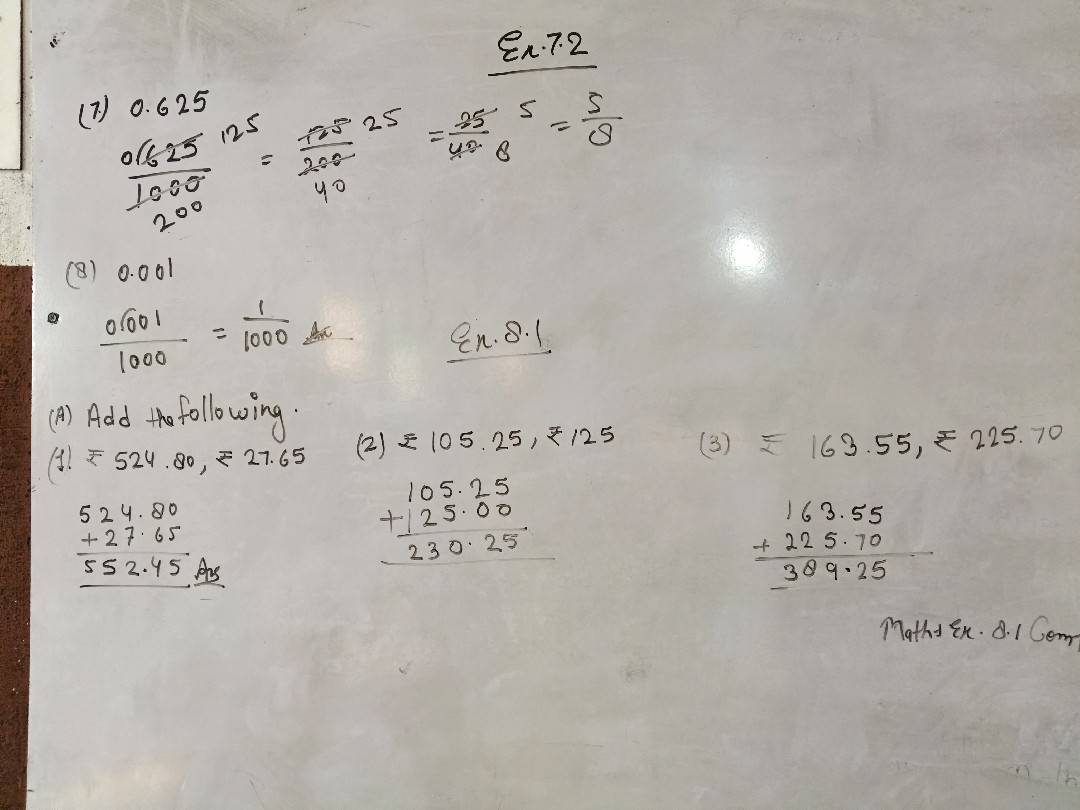 Ex.7.2
(7) 0.625
0625/1000 125 200 = 125/200 25 40 = 25/40 5 8 = 5/8
(8) 0.001
0001/1000 = 1/1000 An
Ex.8.1
(A) Add the following.
(1) ₹ 524.80, ₹ 27.65
524.80
+27.65
552.45 Ans
(2) ₹ 105.25, ₹ 125
105.25
+125.00
230.25
(3) ₹ 163.55, ₹ 225.70
163.55
+ 225.70
389.25
Maths Ex. 8.1 Com